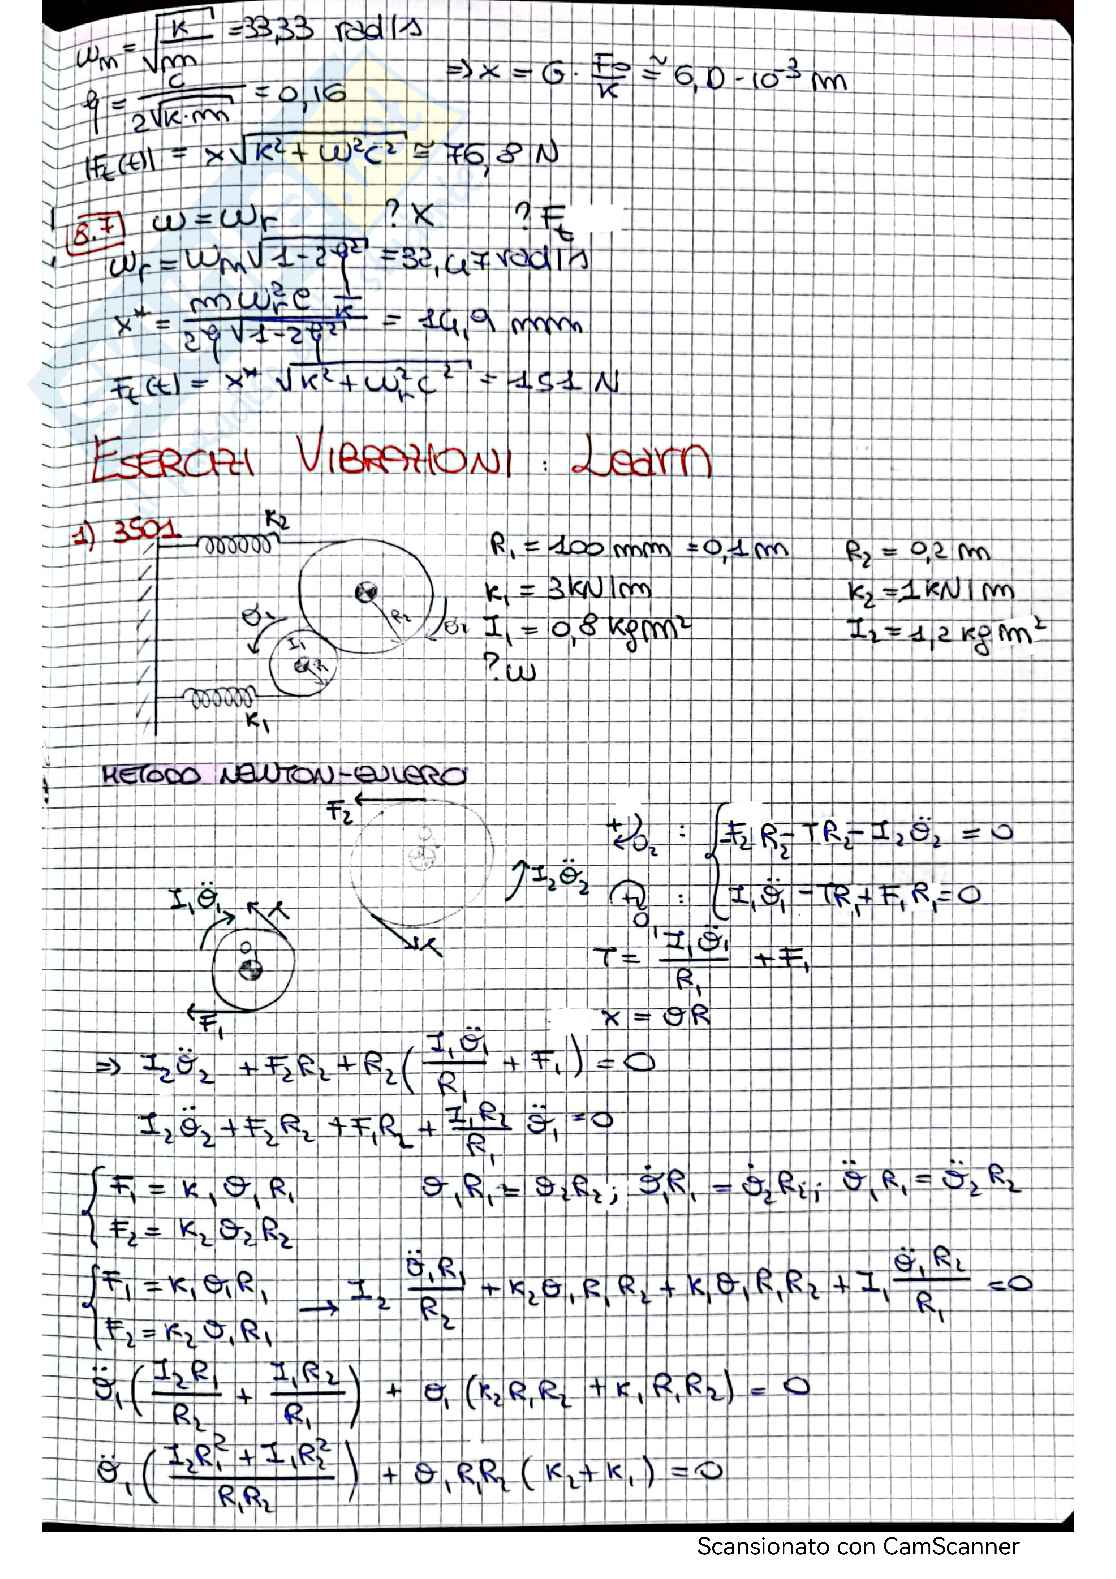 ωn = √k/√m = 33,33 rad/s
⇒ x = G · F0/k ≅ 6,0 · 10⁻³ m
ξ = c/2√k·m = 0,16
|Ft(t)| = x√k² + ω²c² ≅ 76,8 N
8.7) ω = ωr ? X ? Ft
ωr = ωn √1-2ξ² = 32,47 rad/s
x* = mωr²e 1/k / 2ξ√1-2ξ² = 14,9 mm
Ft(t) = x* √k² + ωr²c² = 151 N
ESERCIZI VIBRAZIONI: Learn
1) 3501
K2
R1 = 100 mm = 0,1 m R2 = 0,2 m
K1 = 3 kN/m K2 = 1 kN/m
R2
θ2 θ2 I1 = 0,8 kgm² I2 = 1,2 kgm²
I1
R1
? ω
K1
METODO NEWTON-EULERO
F2
+ O2 : { -F2R2 - TR2 - I2θ̈2 = 0
I2θ̈2
I1θ̈1
O1 : { I1θ̈1 - TR1 + F1R1 = 0
O1
T = I1θ̈1/R1 + F1
F1
x = θR
⇒ I2θ̈2 + F2R2 + R2 ( I1θ̈1/R1 + F1 ) = 0
I2θ̈2 + F2R2 + F1R2 + I1R2/R1 θ̈1 = 0
{ F1 = K1θ1R1 θ1R1 = θ2R2; θ̇1R1 = θ̇2R2; θ̈1R1 = θ̈2R2
F2 = K2θ2R2
{ F1 = K1θ1R1 → I2 θ̈1R1/R2 + K2θ1R1R2 + K1θ1R1R2 + I1 θ̈1R2/R1 = 0
F2 = K2θ1R1
θ̈1 ( I2R1/R2 + I1R2/R1 ) + θ1 (K2R1R2 + K1R1R2) = 0
θ̈1 ( I2R1² + I1R2² / R1R2 ) + θ1R1R2 (K2 + K1) = 0
Scansionato con CamScanner